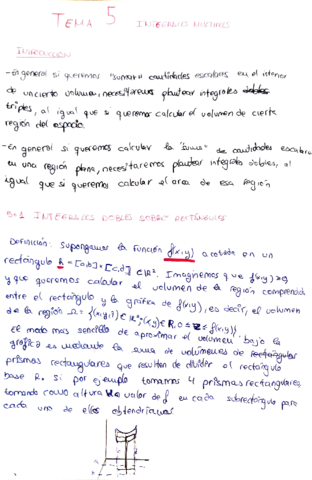 TEMA 5 INTEGRALES MÚLTIPLES
INTRODUCCIÓN
-En general si queremos "sumar" cantidades escalares en el interior
de un cierto volumen, necesitaremos plantear integrales dobles
triples, al igual que si queremos calcular el volumen de cierta
región del espacio.
-En general si queremos calcular la "suma" de cantidades escalares
en una región plana, necesitaremos plantear integrales dobles, al
igual que si queremos calcular el area de esa región
5.1 INTEGRALES DOBLES SOBRE RECTÁNGULOS
Definición: Supongamos la función f(x,y) acotada en un
rectángulo R = [a,b]×[c,d] ∈ ℝ². Imaginemos que f(x,y)≥0
y que queremos calcular el volumen de la región comprendida
entre el rectángulo y la gráfica de f(x,y), es decir, el volumen
de la región Ω = {(x,y,z) ∈ ℝ³; (x,y) ∈ R, 0≤z≤f(x,y)}
El modo mas sencillo de aproximar el volumen bajo la
gráfica es mediante la suma de volúmenes de rectangular
prismas rectangulares que resultan de dividir el rectángulo
base R. Si por ejemplo tomamos 4 prismas rectangulares,
tomando como altura valor de f en cada subrectángulo para
cada uno de ellos obtendríamos